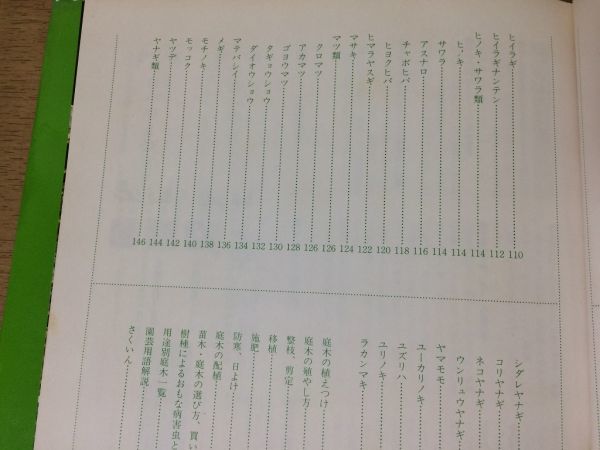 ヒイラギ……110
ヒイラギナンテン……112
ヒノキ・サワラ類……114
ヒノキ……114
サワラ……114
アスナロ……116
チャボヒバ……118
ヒヨクヒバ……120
ヒマラヤスギ……122
マサキ……124
マツ類……126
クロマツ……126
アカマツ……128
ゴヨウマツ……130
タギョウショウ……132
ダイオウショウ……134
マテバシイ……136
メギ……138
モチノキ……140
モッコク……142
ヤツデ……144
ヤナギ類……146
シダレヤナギ
コリヤナギ
ネコヤナギ
ウンリュウヤナギ
ヤマモモ
ユーカリノキ
ユズリハ
ユリノキ
ラカンマキ
庭木の植えつけ
庭木の殖やし方
整枝、剪定
移植
施肥
防寒、日よけ
庭木の配植
苗木・庭木の選び方、買い
樹種によるおもな病害虫と
用途別庭木一覧
園芸用語解説
さくいん